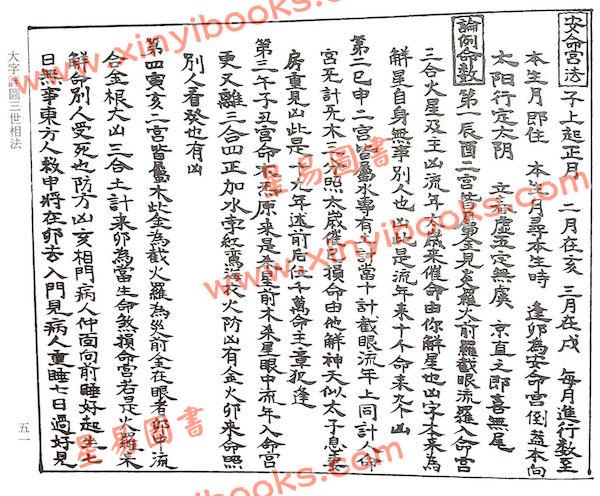 安命宮法 子上起正月 二月在亥 三月在戌 每月進行數至
本生月即住 本生月尋本生時 逢卯為安命宮倒蓋本向
太阳行定太阴 立 虛五定無虞 京直之即喜無尾
論例命數 第一辰酉二宮皆屬金見 羅火前羅截眼流羅入命宮
三合火星及主凶流年 歲來催命由你解星也凶字木来為
解星自身無事別人也凶此是流年来十个命来九个凶
第二巳申二宮皆屬水專有 計當十計截眼流年上同計人命
宮死計死木三方照太歲催已損命由他解神天似太子息妻
房重見凶此是十 九年送前后任千萬命主章犯逢
第三午子丑宮命 原來是 前木来星眼中流年入命宮
更又離三合四正加水孛紅鸾 火防凶有金火卯来命照
別人看發也有凶
第四寅亥二宮皆屬木此金為截火羅為災前全在眼者卯中流
合金根大凶三合土計来卯為當生命煞損命宮若是火羅来
解命別人受死也防方凶亥相門病人仲面向前睡好起生七
日無事東方人救申將在卯去入門見病人重睡七日過好見
大字 三世相法
五一
星易圖書
www.xinyibooks.com
星易圖書
www.xinyibooks.com
星易圖書
www.xinyibooks.com